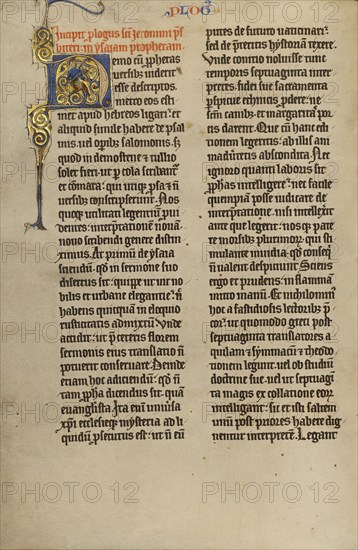 PLOG̅
Incipit plogus sc̅i ieronimi p̅s
biteri in ysaiam prophetam
Nemo cu̅ p̅phetas
uersib; uiderit
esse descriptos.
metro eos esti
met apud hebreos ligari: et
aliquid simile habere de psal
mis. uel op̅ib; salomonis. s;
quod in demostene et tullio
solet fieri. ut p̅ cola scriba̅t̅
et co̅mata: qui utiq; p̅sa
uersib; conscripserunt. Nos
quoq; utilitati legentiu̅ p̅ui
dentes: interpretatione̅ noua̅
nouo scribendi genere distin
ximus. Ac primu̅ de ysaia
sciendu̅: q̅d in sermone suo
disertus sit: quippe ut uir no
bilis et urbane elegantie: n̅
habens quicq̅ua̅ in eloquio
rusticitatis admixtu̅. Unde
accidit: ut p̅ ceteris florem
sermonis eius translatio n̅
potuerit conseruare. Deinde
etiam hoc adiciendu̅: q̅d n̅
tam p̅pha dicendus sit. quam
euang̅lista. Ita eni̅ uniu̅sa
xp̅i ecclesieq; mysteria ad li
quidu̅ p̅secutus est: ut n̅ eu̅
putes de futuro uaticinari:
sed de p̅teritis hystoriam texere.
Unde conicio noluisse tunc
temporis septuaginta inter
pretes. fidei sue sacramenta
p̅spicue ethnicis p̅dere: ne
sc̅m canib; et margaritas por
cis darent. Que cu̅ hanc edi
tionem legeritis: ab illis ani
maduertetis abscondita. Nec
ignoro quanti laboris sit
p̅phas intelligere: nec facile
quempia̅ posse iudicare de
interp̅tatione. nisi intellexit
ante que legerit: nosq; pate
re morsib; plurimor̅. qui sti
mulante inuidia. q̅d conseq̅
n̅ ualent despiciunt. Sciens
ergo et prudens. in flamma̅
mitto manu̅. Et nichilomin̅
hoc a fastidiosis lectorib; p̅
cor: ut quomodo greci post
septuaginta translatores a
quilam et symmacu̅ et theodo
tionem legunt. uel ob studiu̅
doctrine sue. uel ut septuagi̅
ta magis ex collatione eor̅
intelligant: sic et isti saltem
unu̅ post priores habere dig
nentur interprete̅. Legant
PHOTO 12